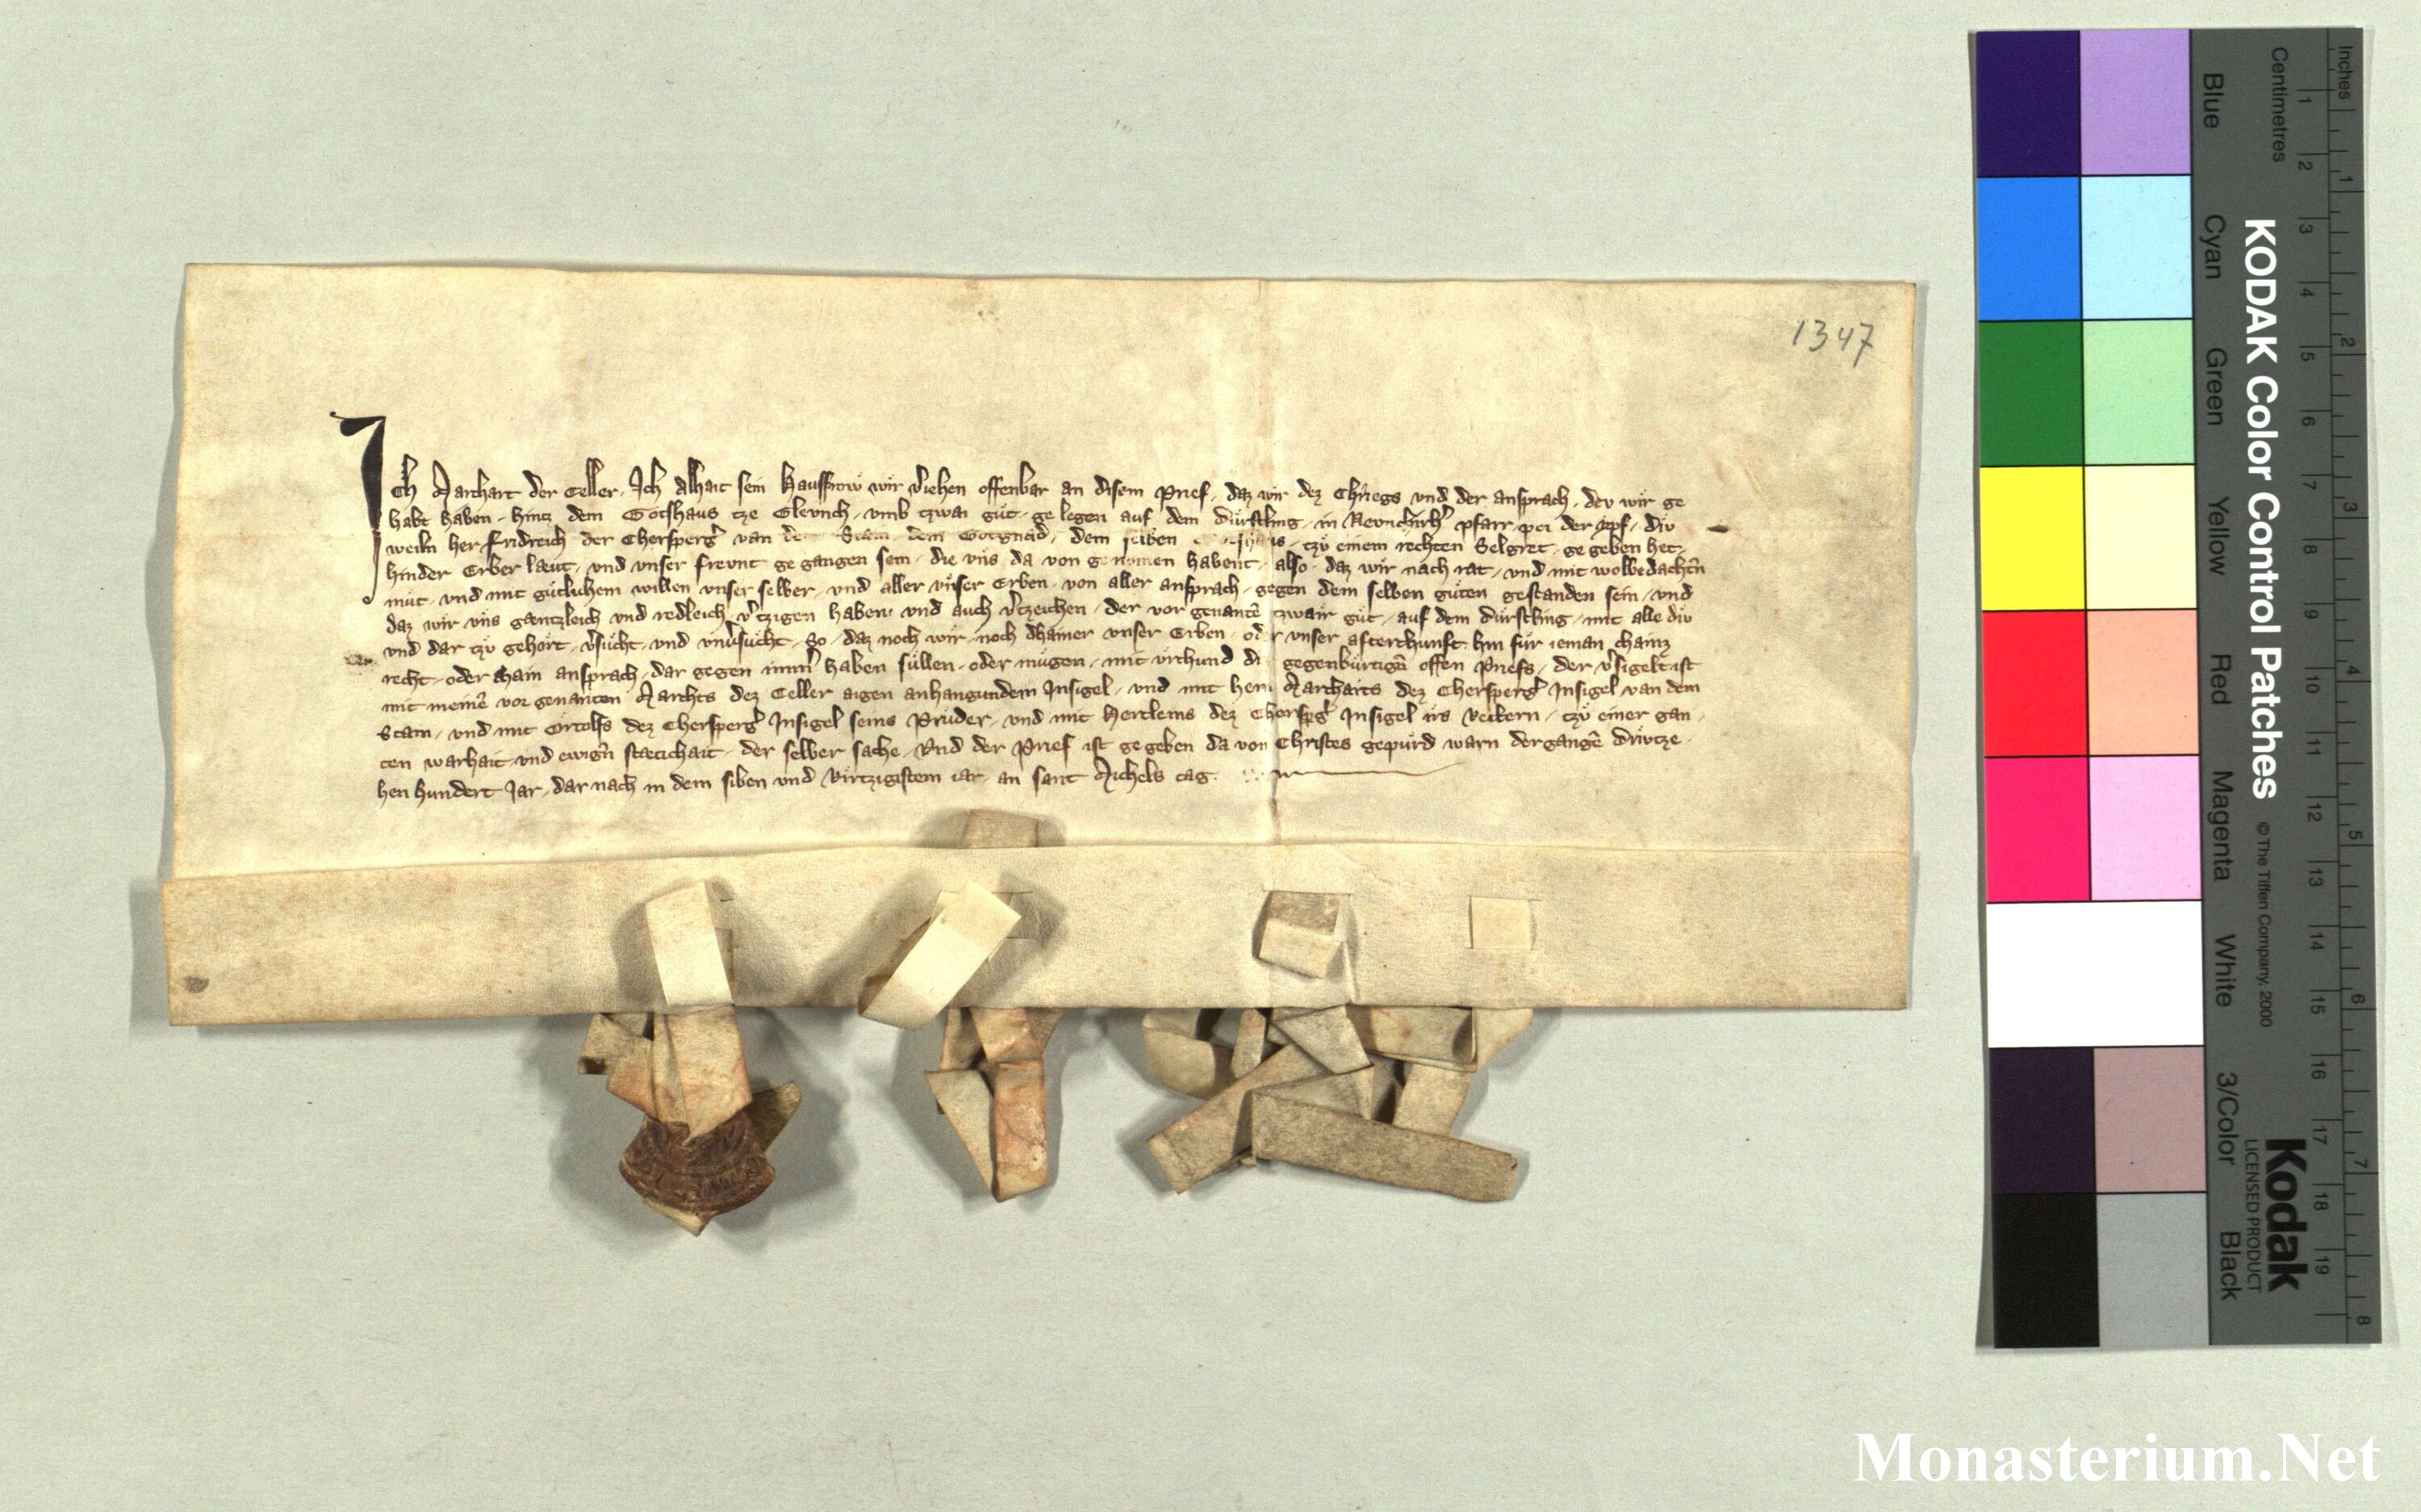 1347
Ich Marchart der Celler. Ich Alhait sein Hausfrow wir v̾iehen offenbar an disem Prief, daz wir dez Chriegs und der ansprach, dev wir ge
habt haben, hintz dem Gotshaus tze Glevnch, umb tzwai gůt, ge legen auf dem dürstling, in pfarr, pei der diu
weiln her Fridreich der Chersperg̾ van Stain, dem Gotgnad, dem selben tzů einem rechten Selgret, ge geben het,
hinder Erber laeut, und unser frevnt ge gangen sein, die uns da von genomen habent, also, daz wir nach rat, und mit wolbedachtm̄
můt, und mit gůtlichem willen unser selber, und aller unser Erben, von aller ansprach, gegen dem selben gůten gestanden sein, und
daz wir uns gaentzleich und redleich v̾tzigen haben, und auch v̾tzeichen, der vor genantē tzwair gůt, auf dem dürstling, mit alle div
und dar tzů gehört, v̾sůcht, und unv̾sůcht, So, daz noch wir, noch dhainer unser Erben, oder unser afterchunft, hin für ieman, chainz
recht, oder chain ansprach, dar gegen imm̾ haben süllen, oder mügen, mit urchund di gegenbürtign̄ offen Priefs, der v̾sigelt ist
mit meinē vor genanten Marchts dez Celler aigen anhangundem Insigel, und mit hern Marcharts dez Chersperg̾ Insigel van dem
Stain, und mit Ortolfs dez Chersperg̾ Insigel seins Prüder, und mit Hertleins dez Cherspg̾ Insigel irs vetern, tzů einer gan,
tzen warhait, und ewign̄ staetichait, der selber sache, Und der Prief ist ge geben da von Christes gepürd warn dergangē drivtze,
hen hundert Jar, dar nach in dem siben und virtzigistem iar, an sant Michels tag.
KODAK Color Control Patches
© The Tiffen Company, 2000
Kodak
LICENSED PRODUCT
Inches
1 2 3 4 5 6 7 8
Centimetres
1 2 3 4 5 6 7 8 9 10 11 12 13 14 15 16 17 18 19
Blue
Cyan
Green
Yellow
Red
Magenta
White
3/Color
Black
Monasterium.Net